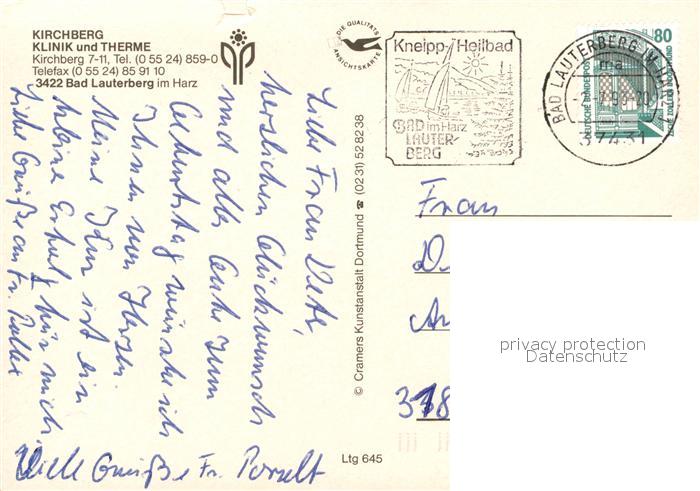 KIRCHBERG
KLINIK und THERME
Kirchberg 7-11, Tel. (0 55 24) 859-0
Telefax (0 55 24) 85 91 10
3422 Bad Lauterberg im Harz
DIE QUALITÄTS
ANSICHTSKARTE
Kneipp-Heilbad
BAD im Harz
LAUTER-
BERG
BAD LAUTERBERG IM
37431
80
DEUTSCHE BUNDESPOST
Liebe Frau
herzlichen Glückwunsch
und alles Gute zum
Geburtstag wünsche ich
Ihnen von Herzen.
Meine Kur ist ein
kleine für mich.
Liebe Grüße an Fr.
Viele Grüße Fr. Porzelt
© Cramers Kunstanstalt Dortmund ☎ (02 31) 52 82 38
Ltg 645
Frau
D
An
318
privacy protection
Datenschutz